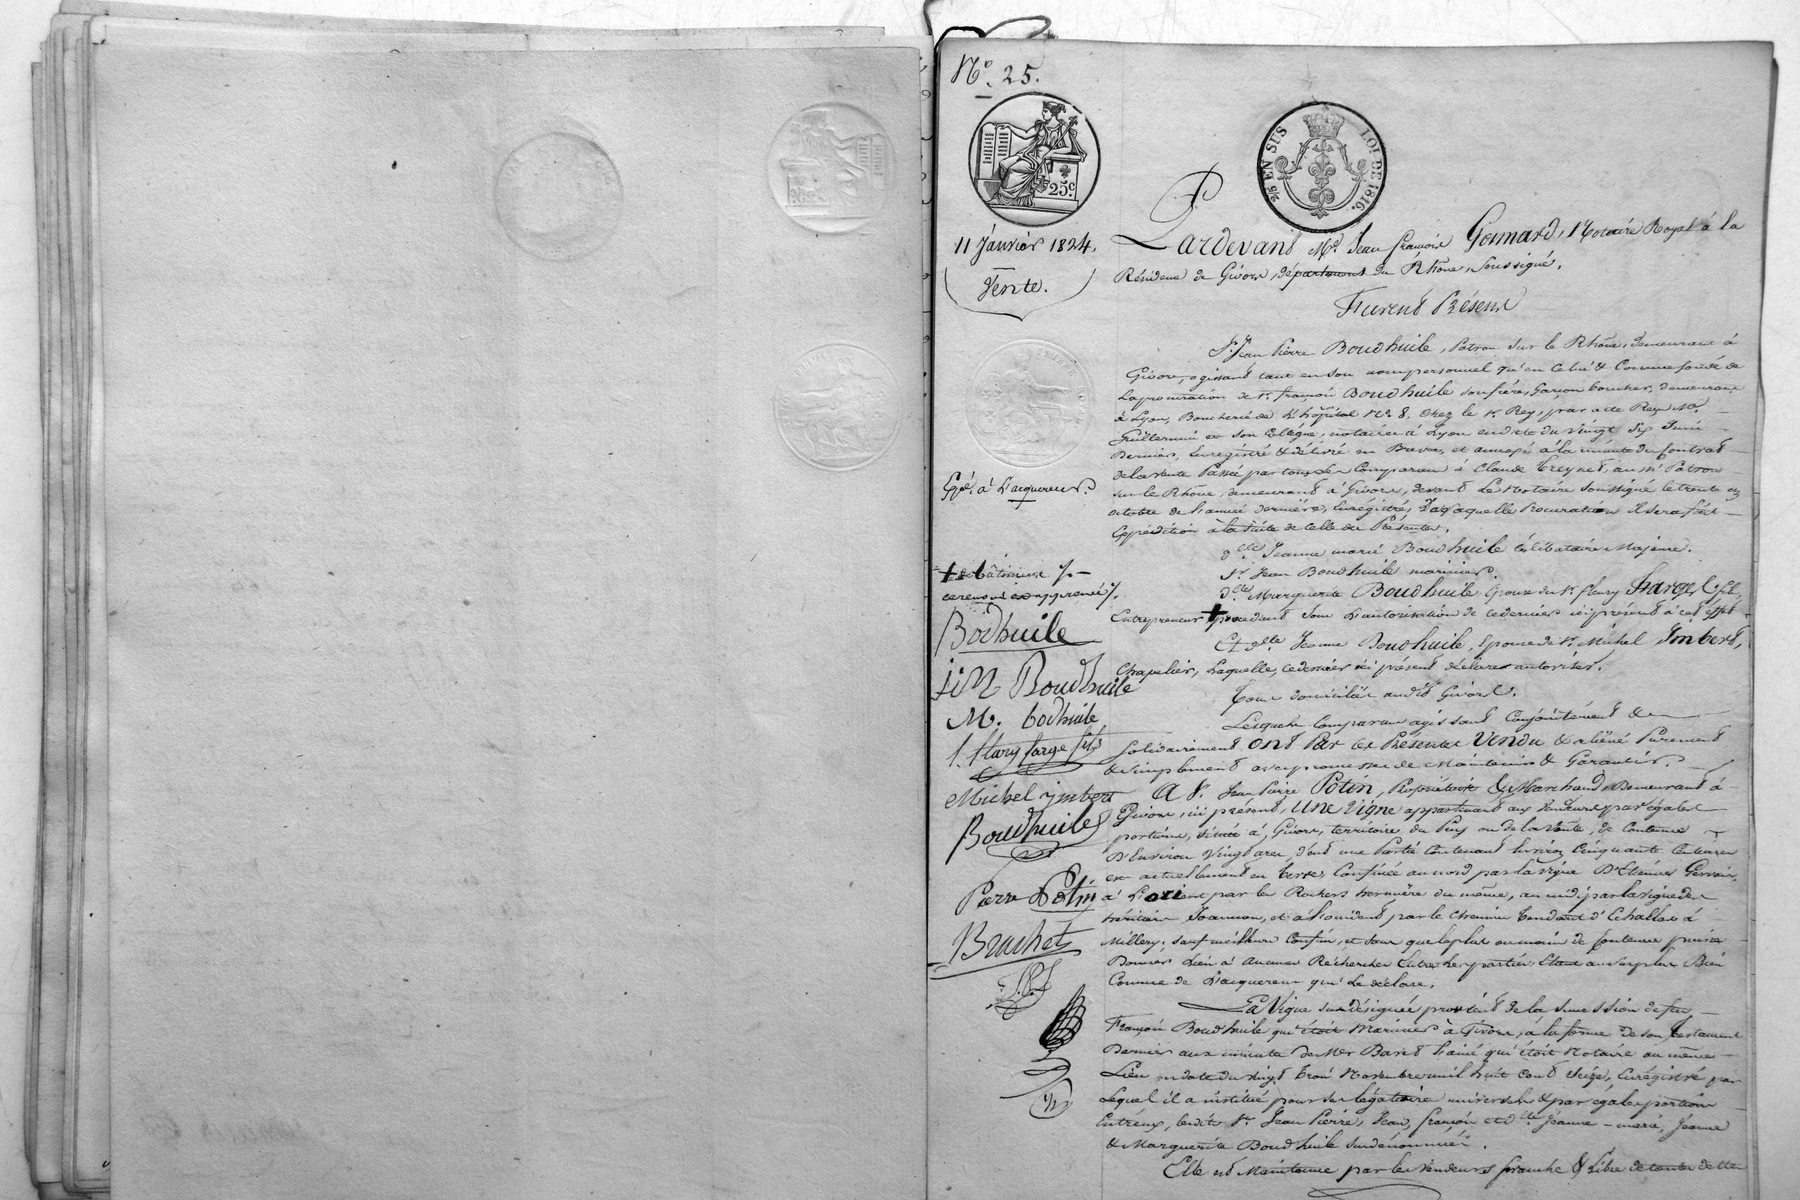 N.º 25.
25.c
2/5 EN SUS LOI DE 1816.
11 Janvier 1824.
Vente.
Pardevant Me. Jean françois Gounard, Notaire Royal à la
Résidence de Givors, département du Rhône, soussigné,
Furent Présens
Sr. Jean Pierre Boudhuile, Patron sur le Rhône, demeurant à
Givors, agissant tant en son nom personnel qu'en celui & comme fondé de
la procuration de sr. françois Boudhuile son frère, Garçon boucher, demeurant
à Lyon, Boucherie de l'hôpital No. 8. chez le sr. Rey, par acte Reçu Me.
Guillermin et son collègue, notaires à Lyon en date du vingt six Juin
Dernier, Enregistré & délivré en Brevet, et annexé à la minute du Contrat
de la vente Passée par tous les Comparans à Claude Freynet, aussi Patron
sur le Rhône, demeurant à Givors, devant Le Notaire soussigné le trente
octobre de l'année dernière, Enregistré, De laquelle Procuration il sera fait
Expédition à la suite de celle des Présentes.
Expé. à l'acquereur.
dlle. Jeanne marie Boudhuile célibataire Majeure.
Sr. Jean Boudhuile marinier.
dlle. Marguerite Boudhuile, Epouse du sr. fleury Farge fils,
Entrepreneur + procédant sous L'autorisation de ce dernier ici présent à cet effet
+ de bâtimens /.
ce renvoi est approuvé /.
Et dlle. Jeanne Boudhuile, Epouse de sr. Michel Imbert,
Chapelier, Laquelle, ce dernier ici présent déclare autoriser.
Tous domiciliés audit Givors.
Lesquels Comparans agissant Conjointement &
solidairement ont Par ces Présentes Vendu & aliéné Purement
& simplement avec promesse de Maintenir & Garantir.
A Sr. Jean Pierre Potin, Propriétaire & Marchand Demeurant à
Givors, ici présent, Une Vigne appartenant aux Vendeurs par égales
portions, située à Givors, territoire du Puy ou de la Vente, de Contenue
D'Environ Vingt ares, dont une Partie Contenant Environ Cinquante Centiares
est actuellement en terre, Confinée au nord par la vigne D'Etienne Gervais,
à L'orient par les Rochers hermière du même, au midi par la vigne des
héritiers Joannon, et à l'occident par le chemin tendant d'Echallas à
Millery, sauf meilleurs Confins, et sans que le plus ou moins de Contenue puisse
Donner Lieu à Aucunes Recherches Entre les parties, Etant au surplus Bien
Connue de L'acquereur qui Le déclare.
La Vigne sus désignée provient de la succession de feu
François Boudhuile qui étoit Marinier à Givors, à la forme de son testament
Dernier aux minutes de Me. Baret L'ainé qui étoit Notaire au même
Lieu en date du vingt trois Novembre mil huit cent seize, Enrégistré par
Lequel il a institué pour ses légataires universels & par égales portions
Entr'eux, lesdits Srs. Jean Pierre, Jean, françois et dlles. Jeanne-marie, Jeanne
& Marguerite Boudhuile susdénommés.
Elle est Maintenue par les Vendeurs franche & Libre de toutes dettes
Bodhuile
j m Boudhuile
M. bodhuile
f. flary farge fils
Michel ymbert
Boudhuile
Pierre Potin
Brachet